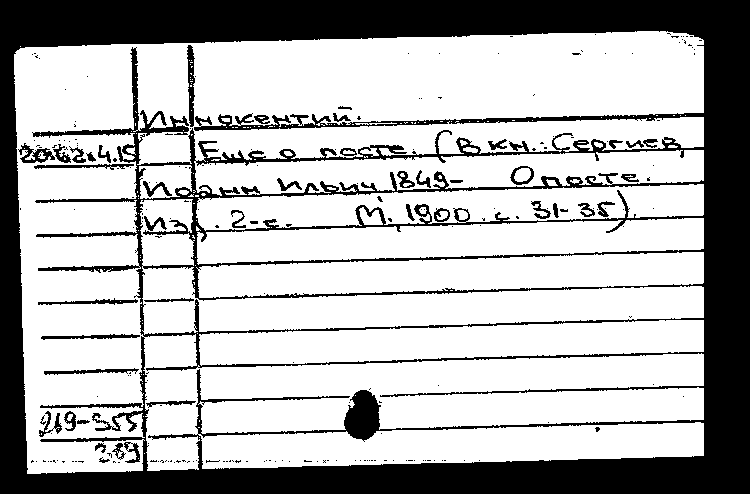 Иннокентий.
Еще о посте. (В кн.: Сергиев,
Иоанн Ильич, 1849- О посте.
Изд. 2-е. М., 1900. с. 31-35).
269-355
389